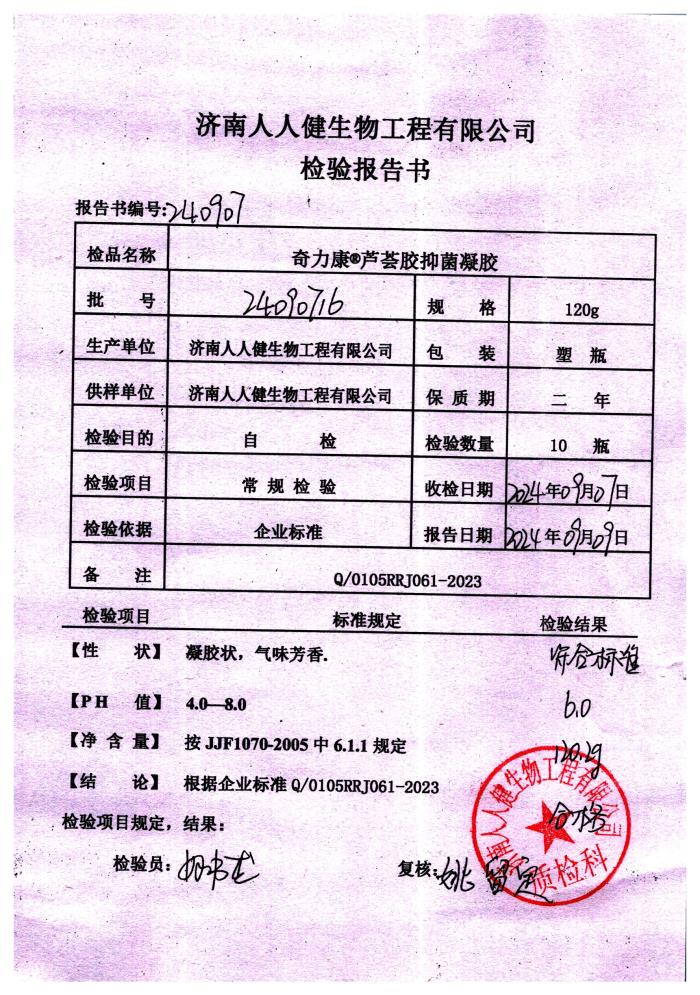 济南人人健生物工程有限公司
检验报告书
报告书编号:240907
检品名称 奇力康®芦荟胶抑菌凝胶
批 号 24090716 规 格 120g
生产单位 济南人人健生物工程有限公司 包 装 塑 瓶
供样单位 济南人人健生物工程有限公司 保 质 期 二 年
检验目的 自 检 检验数量 10 瓶
检验项目 常 规 检 验 收检日期 2024年09月07日
检验依据 企业标准 报告日期 2024年09月09日
备 注 Q/0105RRJ061-2023
检验项目 标准规定 检验结果
【性 状】 凝胶状，气味芳香. 符合标准
【PH 值】 4.0—8.0 6.0
【净 含 量】 按 JJF1070-2005 中 6.1.1 规定 120.2g
【结 论】 根据企业标准 Q/0105RRJ061-2023
检验项目规定，结果： 合格
检验员： 复核: 姚
济南人人健生物工程有限公司
质检科